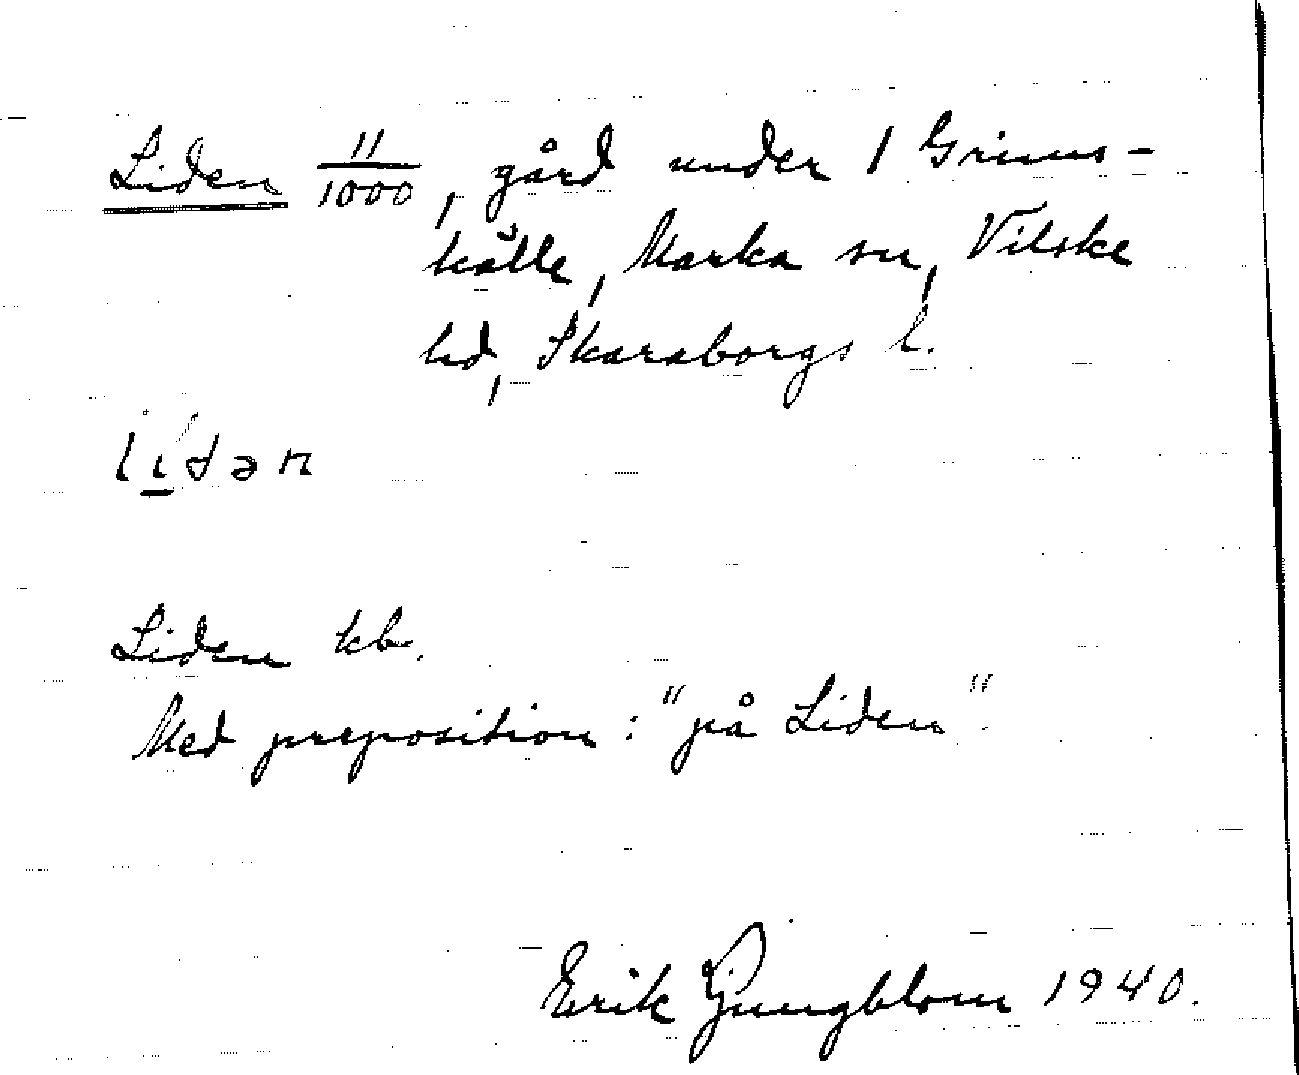 Liden 11/1000, gård under 1 Grims-
källe, Marka sn, Vilske
hd, Skaraborgs l.
lí̲dən
Liden kb.
Med preposition: "på Liden".
Erik Ljungblom 1940.